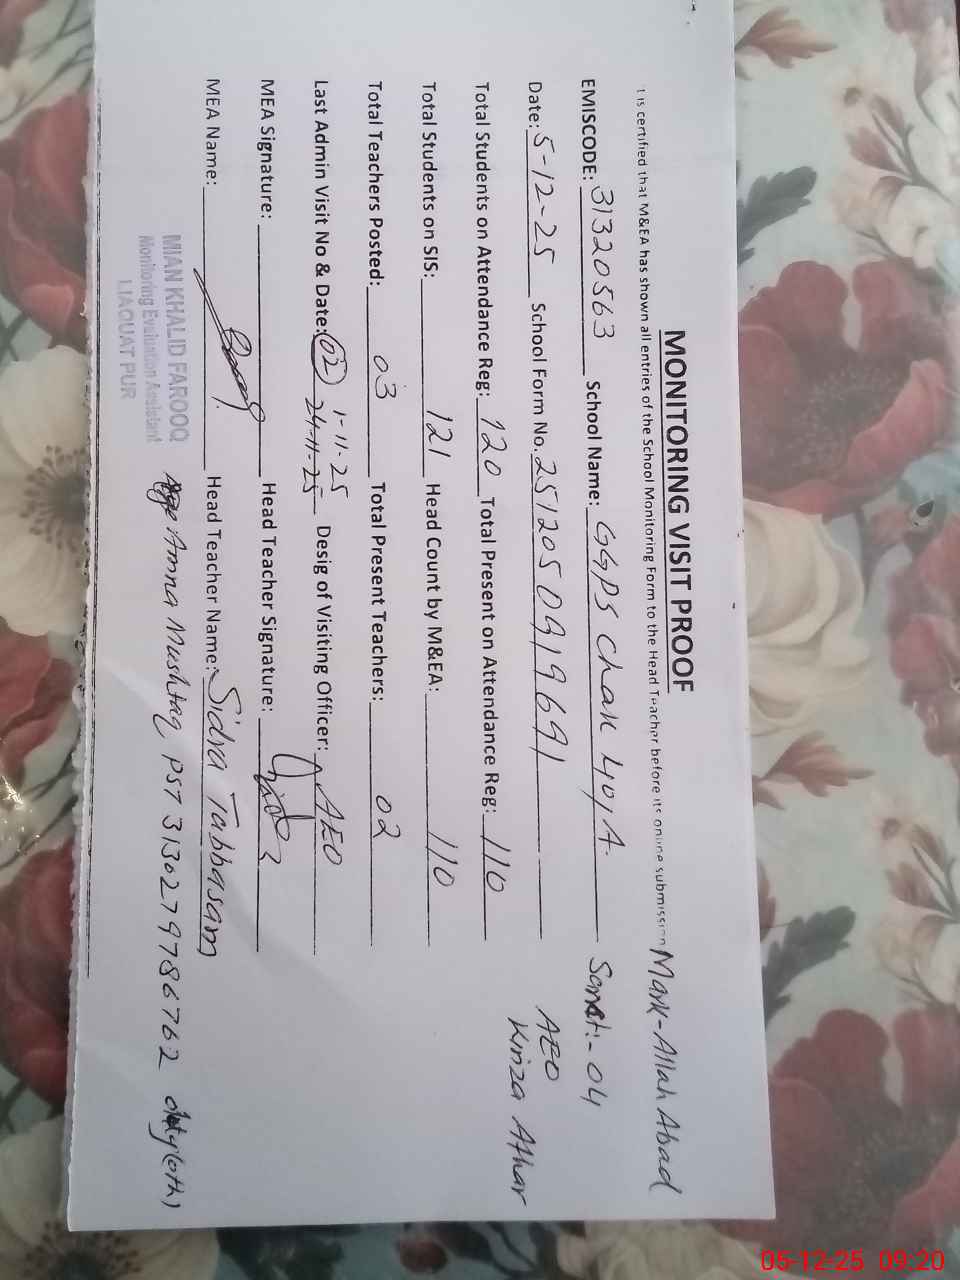 MONITORING VISIT PROOF
t is certified that M&EA has shown all entries of the School Monitoring Form to the Head Teacher before its online submission Mark-Allah Abad
EMISCODE: 31320563 School Name: GGPS Chak 40/A. Sanct:- 04
Date: 5-12-25 School Form No. 2512050919691 AEO
Kinza Athar
Total Students on Attendance Reg: 120 Total Present on Attendance Reg: 110
Total Students on SIS: 121 Head Count by M&EA: 110
Total Teachers Posted: 03 Total Present Teachers: 02
Last Admin Visit No & Date: 02 1-11-25 24-11-25 Desig of Visiting Officer: AEO
MEA Signature: Head Teacher Signature:
MEA Name: Head Teacher Name: Sidra Tabbasam
MIAN KHALID FAROOQ
Monitoring Evaluation Assistant
LIAQUAT PUR
Amna Mushtaq PST 3130279786762
05-12-25 09:20